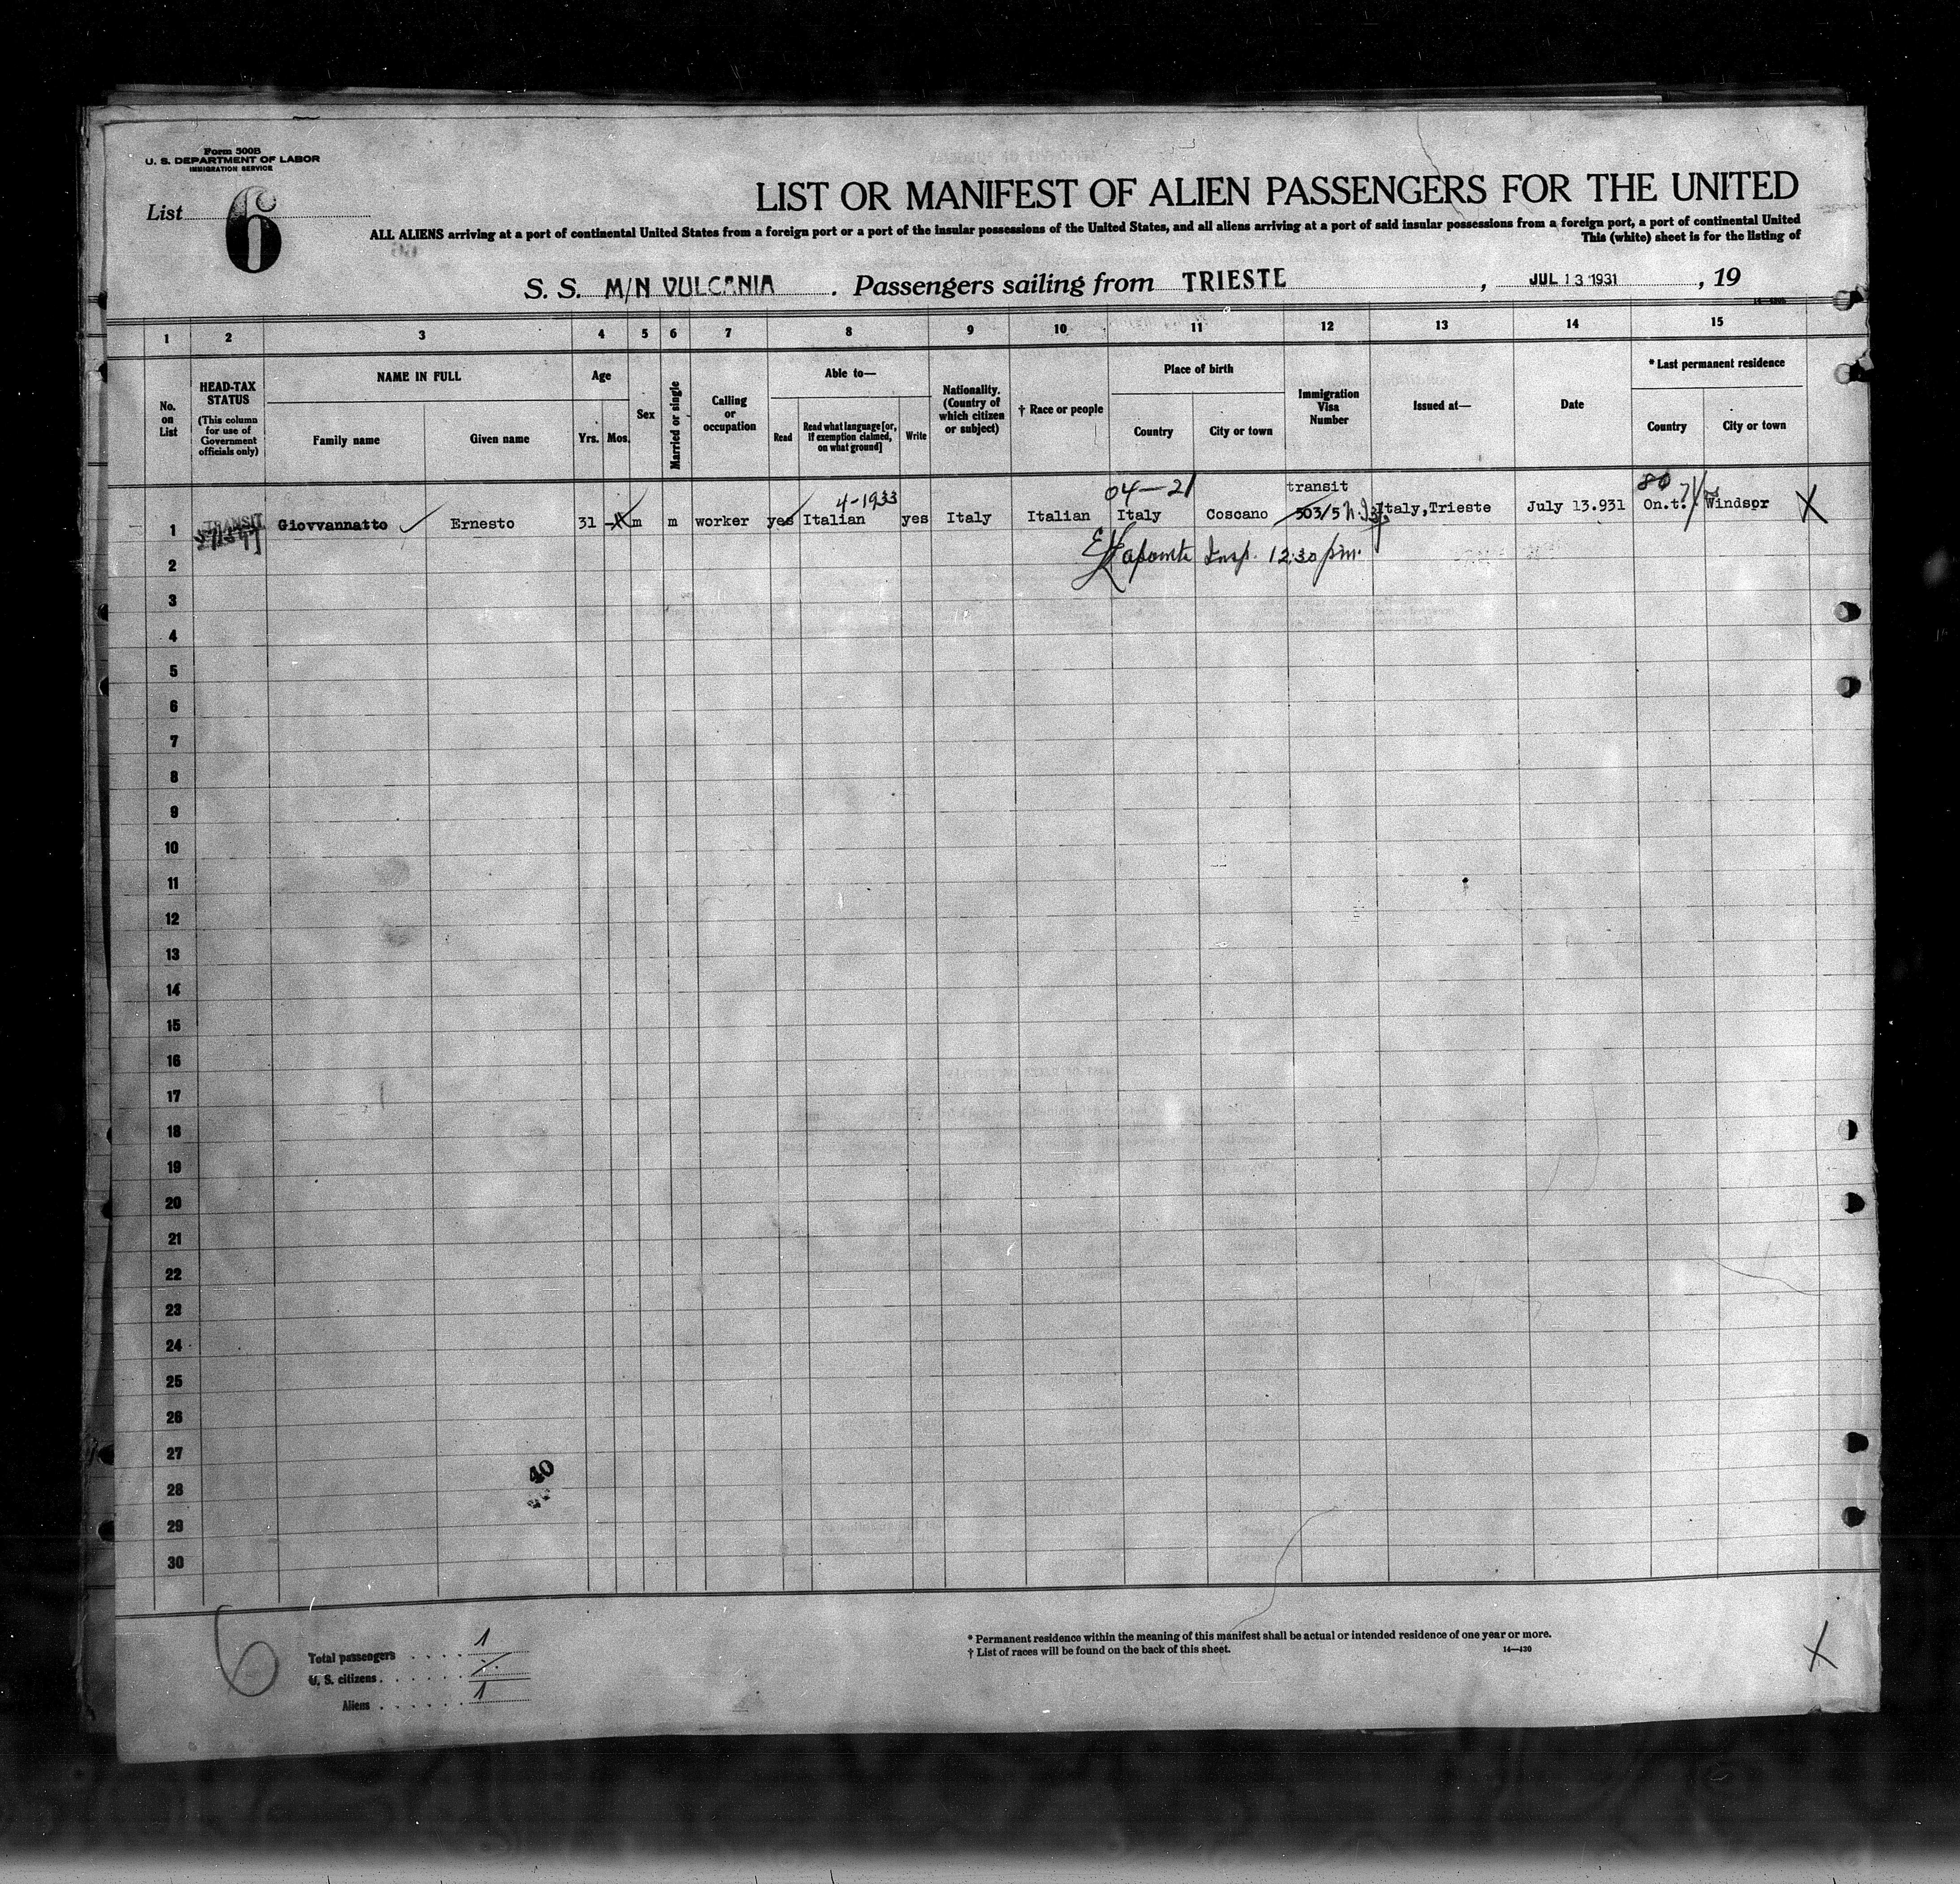 Form 500B
U. S. DEPARTMENT OF LABOR
IMMIGRATION SERVICE
List 6
LIST OR MANIFEST OF ALIEN PASSENGERS FOR THE UNITED
ALL ALIENS arriving at a port of continental United States from a foreign port or a port of the insular possessions of the United States, and all aliens arriving at a port of said insular possessions from a foreign port, a port of continental United
This (white) sheet is for the listing of
S. S. M/N VULCANIA . Passengers sailing from TRIESTE , JUL 13 1931 , 19
1 2 3 4 5 6 7 8 9 10 11 12 13 14 15
No. on List
HEAD-TAX STATUS
(This column for use of Government officials only)
NAME IN FULL
Family name Given name
Age
Yrs. Mos.
Sex
Married or single
Calling or occupation
Able to—
Read Read what language [or, if exemption claimed, on what ground] Write
Nationality. (Country of which citizen or subject)
† Race or people
Place of birth
Country City or town
Immigration Visa Number
Issued at—
Date
* Last permanent residence
Country City or town
4-1933 04-21 transit 80
1 TRANSIT Giovvannatto Ernesto 31 m m worker yes Italian yes Italy Italian Italy Coscano 503/5 Italy,Trieste July 13.931 On.t. Windsor X
2 Insp. 12:30 pm.
3
4
5
6
7
8
9
10
11
12
13
14
15
16
17
18
19
20
21
22
23
24
25
26
27
40
28
29
30
6
Total passengers . . . . 1
U. S. citizens . . . . .
Aliens . . . . . . 1
* Permanent residence within the meaning of this manifest shall be actual or intended residence of one year or more.
† List of races will be found on the back of this sheet. 14—430
X